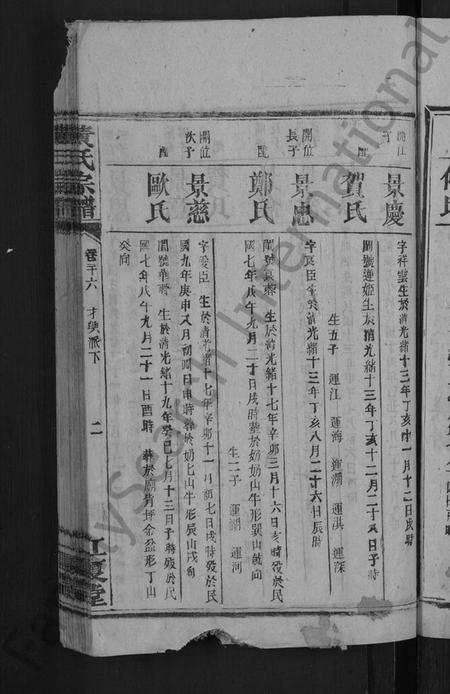 開位
子
景慶
字祥雲生於清光緒十三年丁亥十一月十二日戌時
配
賀氏
閨號蓮姬生於清光緒十三年丁亥十二月二十八日子時
生五子 運江 運海 運湖 運淇 運深
開位
長子
景忠
字良臣生於清光緒十三年丁亥八月二十六日辰時
配
鄭氏
閨號 生於清光緒十七年辛卯三月十六日亥時歿於民
國七年戊午九月二十日戌時葬於奶奶山牛形巽山乾向
生二子 運湖 運河
開位
次子
景慈
字愛臣 生於清光緒十七年辛卯十一月初七日戌時歿於民
國九年庚申八月初四日申時葬於奶奶山牛形辰山戌向
配
歐氏
閨號華 生於清光緒十九年癸巳七月十三日子時歿於民
國七年戊午九月二十一日酉時 葬於廟背坪金盆形丁山
癸向
黃氏宗譜
卷三十六 才興派下
二
江夏堂
FamilySearch International